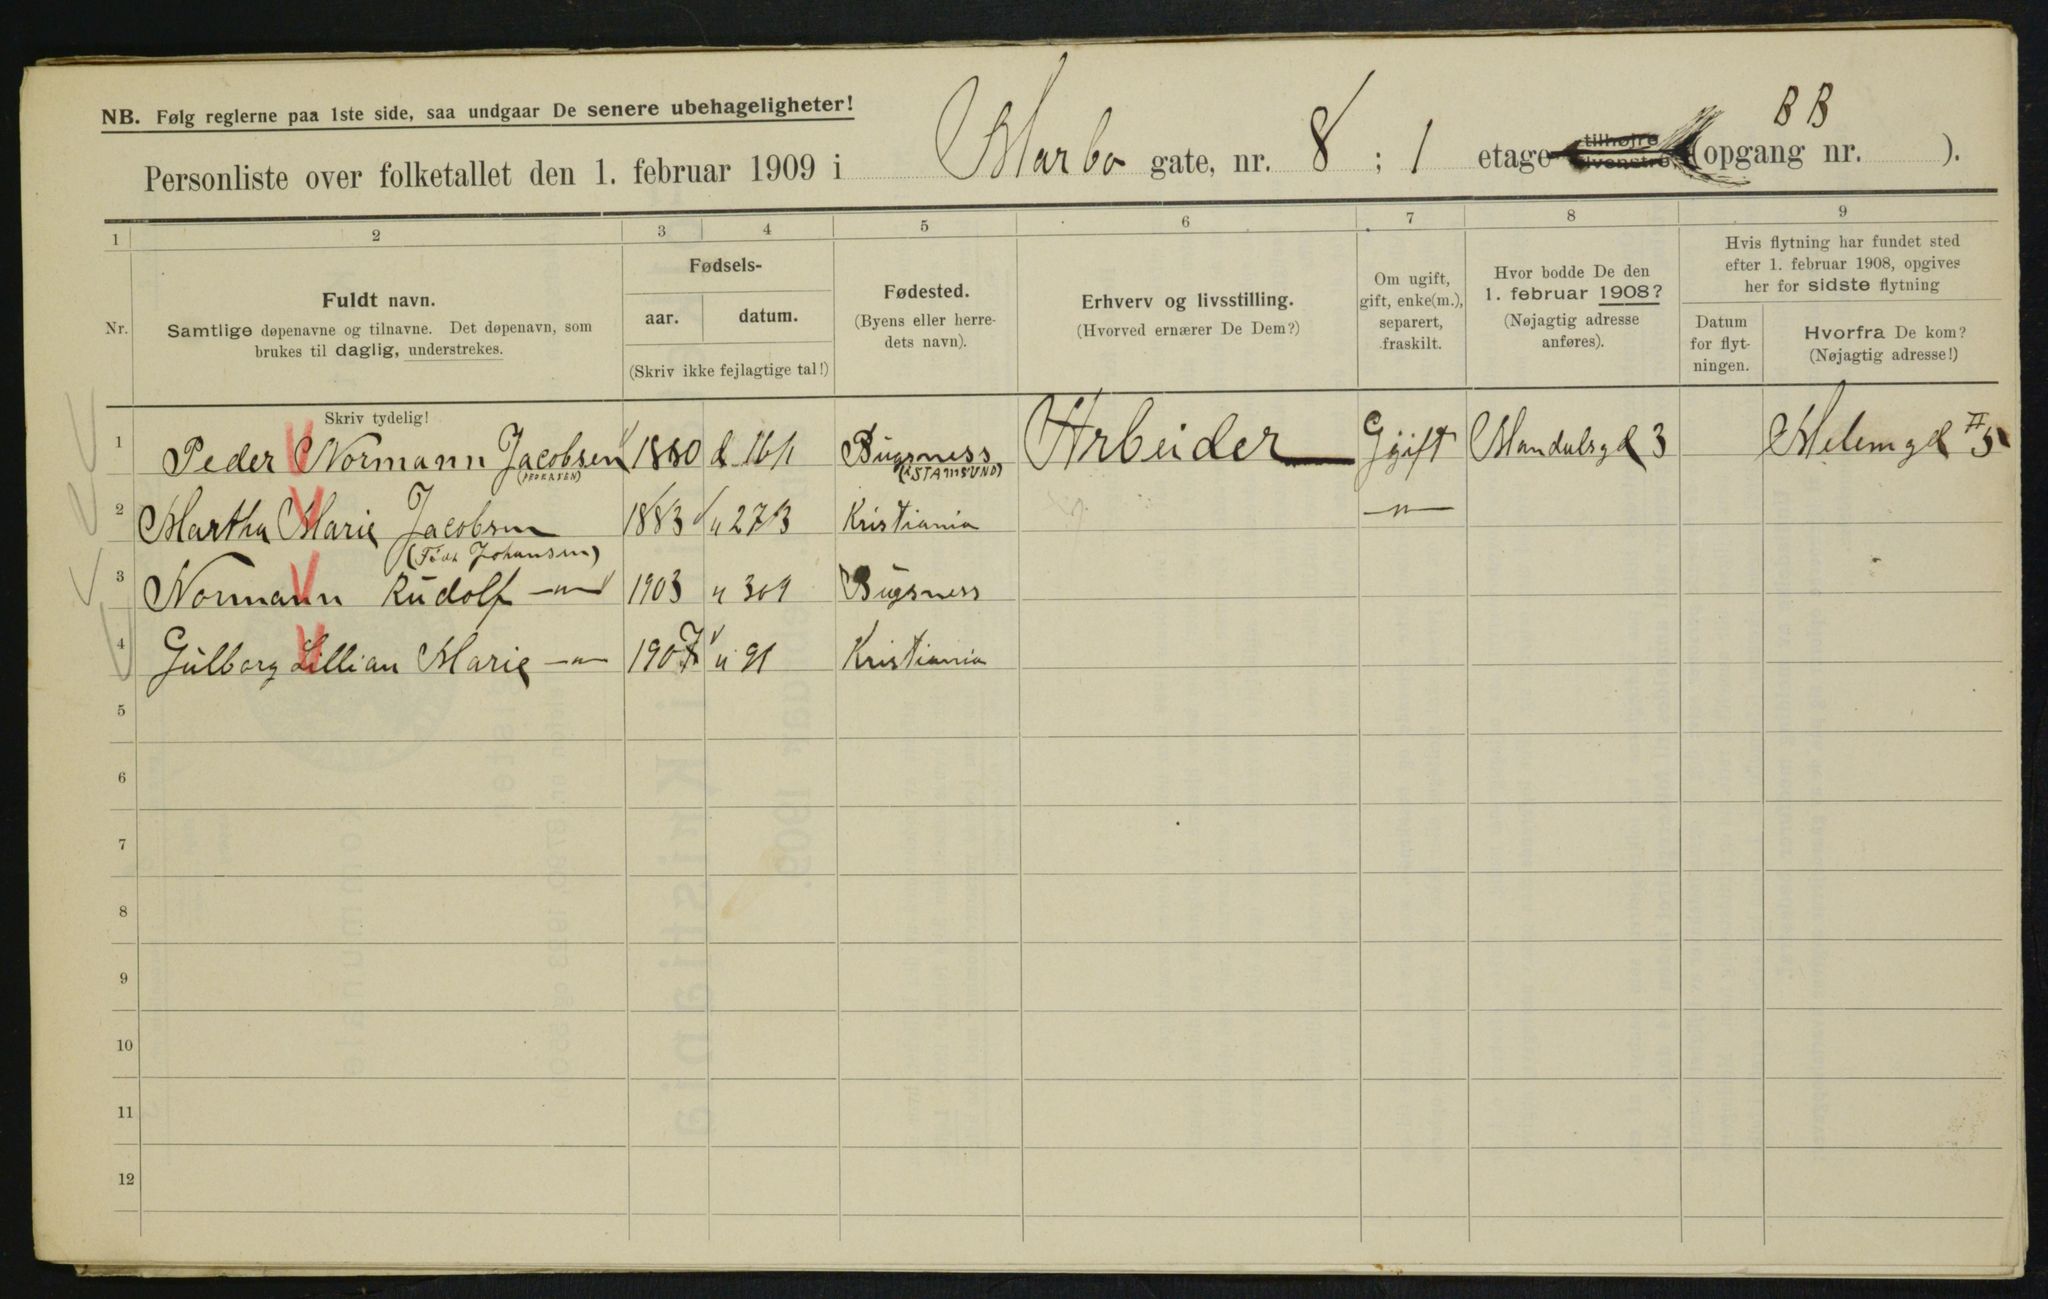 NB. Følg reglerne paa 1ste side, saa undgaar De senere ubehageligheter!
BB
Personliste over folketallet den 1. februar 1909 i Marbo gate, nr. 8 ; 1 etage tilhøjre tilvenstre (opgang nr. ).
1 2 3 4 5 6 7 8 9
Nr.
Fuldt navn.
Samtlige døpenavne og tilnavne. Det døpenavn, som
brukes til daglig, understrekes.
Fødsels-
aar. datum.
(Skriv ikke fejlagtige tal!)
Fødested.
(Byens eller herre-
dets navn).
Erhverv og livsstilling.
(Hvorved ernærer De Dem?)
Om ugift,
gift, enke(m.),
separert,
fraskilt.
Hvor bodde De den
1. februar 1908?
(Nøjagtig adresse
anføres).
Hvis flytning har fundet sted
efter 1. februar 1908, opgives
her for sidste flytning
Datum
for flyt-
ningen.
Hvorfra De kom?
(Nøjagtig adresse!)
Skriv tydelig!
1 Peder Normann Jacobsen 1880 d 16/1 Bugsness Arbeider Gift Mandalsgd 3
(PEDERSEN) (STAMSUND)
2 Martha Marie Jacobsen 1883 " 27/3 Kristiania —"—
(Født Johansen)
3 Normann Rudolf —"— 1903 " 30/9 Bugsness
4 Gulborg Lillian Marie —"— 1907 " 9/1 Kristiania
5
6
7
8
9
10
11
12